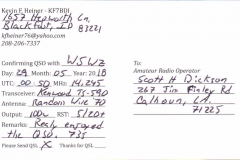 Kevin F. Heiner - KF7BDI
1657 Hepworth Ln,
Blackfoot, ID 83221
kfheiner76@yahoo.com
208-206-7337
Confirming QSO with W5WZ
Day 28 Month 05 Year 2018
UTC 00:50 MHz 14.245
Transceiver Kenwood TS-590
Antenna: Random Wire 70
Output: 100w RST: 5/20+
Remarks: Really enjoyed
the QSO, 73s
Please Send QSL X Thanks for QSL
To:
Amateur Radio Operator
Scott H Dickson
267 Jim Finley Rd
Calhoun, LA.
71225